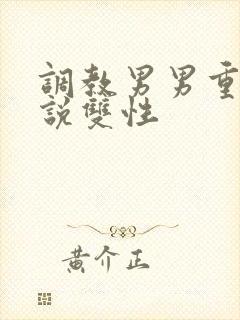 調教男男重
說雙性
黃介正